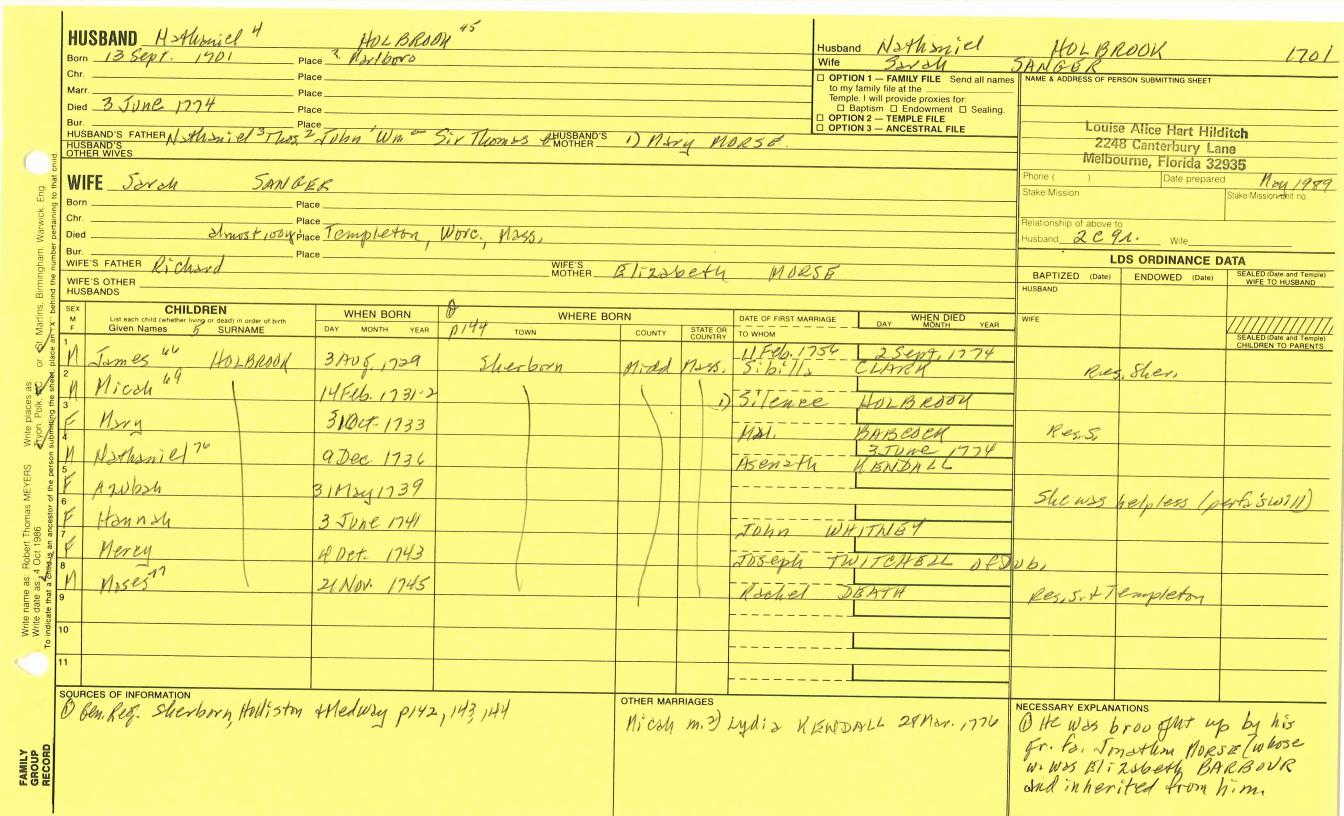 HUSBAND Nathaniel 4 HOLBROOK 45
Born 13 Sept. 1701 Place ? Marlboro
Chr. Place
Marr. Place
Died 3 June 1774 Place
Bur. Place
HUSBAND'S FATHER Nathaniel 3 Thos. 2 John 1 Wm Sir Thomas HUSBAND'S MOTHER 1) Mary MORSE.
HUSBAND'S OTHER WIVES
WIFE Sarah SANGER
Born Place
Chr. Place
Died almost 100 yrs Place Templeton, Worc, Mass.
Bur. Place
WIFE'S FATHER Richard WIFE'S MOTHER Elizabeth MORSE
WIFE'S OTHER HUSBANDS
Husband Nathaniel HOLBROOK 1701
Wife Sarah SANGER
OPTION 1 — FAMILY FILE Send all names
to my family file at the
Temple. I will provide proxies for:
Baptism Endowment Sealing.
OPTION 2 — TEMPLE FILE
OPTION 3 — ANCESTRAL FILE
NAME & ADDRESS OF PERSON SUBMITTING SHEET
Louise Alice Hart Hilditch
2248 Canterbury Lane
Melbourne, Florida 32935
Phone ( ) Date prepared May 1989
Stake Mission Stake Mission unit no.
Relationship of above to
Husband 2C 9r. Wife
LDS ORDINANCE DATA
BAPTIZED (Date) ENDOWED (Date) SEALED (Date and Temple) WIFE TO HUSBAND
HUSBAND
WIFE
SEALED (Date and Temple) CHILDREN TO PARENTS
SEX M F
CHILDREN
List each child (whether living or dead) in order of birth
Given Names 5 SURNAME
WHEN BORN
DAY MONTH YEAR
p144
WHERE BORN
TOWN COUNTY STATE OR COUNTRY
DATE OF FIRST MARRIAGE
TO WHOM
WHEN DIED
DAY MONTH YEAR
1 M James 66 HOLBROOK 3 Aug, 1729 Sherborn Midd Mass. 11 Feb. 1756 2 Sept, 1774
Sibilla CLARK Res, Sher.
2 M Micah 69 14 Feb. 1731-2 1) Silence HOLBROOK
3 F Mary 31 Oct 1733 Mal. BABCOCK Res. S.
4 M Nathaniel 76 9 Dec 1736 3 June 1774
Asenath KENDALL
5 F Azubah 31 May 1739 She was helpless (per fa's will)
6 F Hannah 3 June 1741 John WHITNEY
7 F Mercy 4 Oct. 1743 Joseph TWITCHELL of Dub.
8 M Moses 77 21 Nov. 1745 Rachel DEATH Res, S. & Templeton
9
10
11
SOURCES OF INFORMATION
① Gen. Reg. Sherborn, Holliston & Medway p142, 143, 144
OTHER MARRIAGES
Micah m. 2) Lydia KENDALL 28 Mar. 1776
NECESSARY EXPLANATIONS
① He was brought up by his
gr. fa. Jonathan MORSE (whose
w. was Elizabeth BARBOUR
and inherited from him.
Write name as: Robert Thomas MEYERS Write places as: Tryon, Polk, NC or St Martins, Birmingham, Warwick, Eng.
Write date as: 4 Oct 1986
To indicate that a child is an ancestor of the person submitting the sheet, place an "X" behind the number pertaining to that child
FAMILY GROUP RECORD